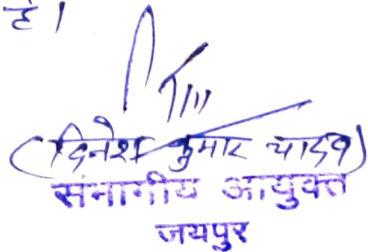 है।
(दिनेश कुमार यादव)
संभागीय आयुक्त
जयपुर